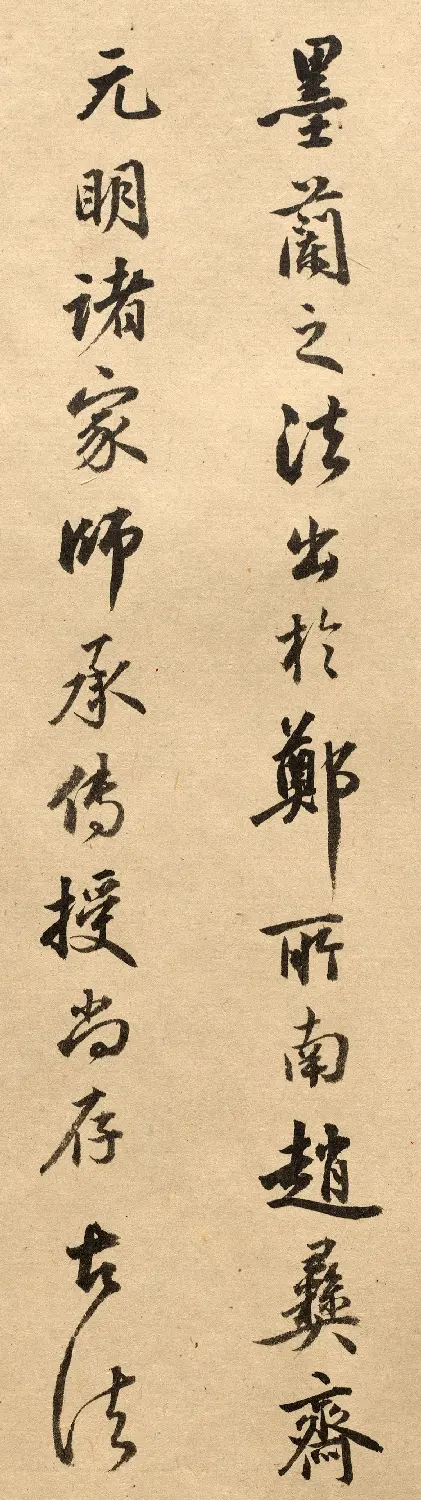 墨蘭之法出於鄭所南趙彝齋
元明諸家師承傳授尚存古法